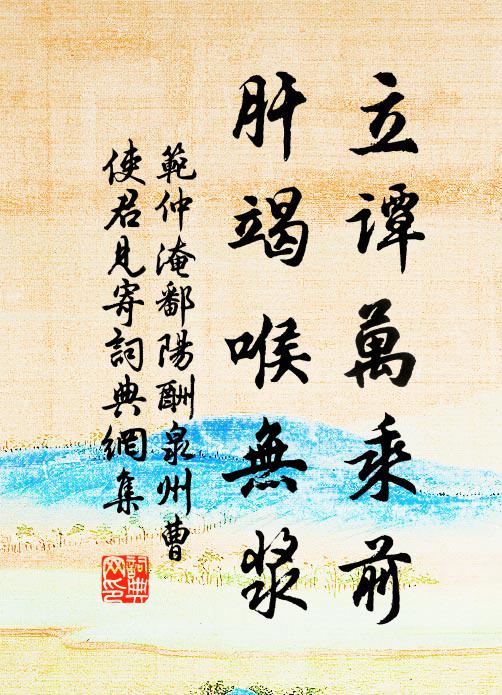 立譚萬乘前
肝竭喉無漿
範仲淹鄱陽酬泉州曹
使君見寄詞典網集
詞典
网印